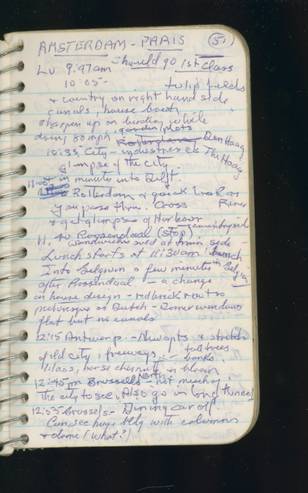 AMSTERDAM - PARIS (5)
LV 9.47am - should go 1st Class
10.05 - tulip fields
+ country on right hand side
canals, house boats
doing 80 mph, garden plots
Den Haag
10.35 City - industries The Hague
glimpse of the city
in minute into Delft
Rotterdam + quick look as
you pass thru. Cross River
+ get glimpse of Harbour
11. to Rossendaal (stop)
sandwiches sold at train side
Lunch starts at 11:30am
Into Belgium a few minutes
after Rossendaal - a change
in house design - red brick not so
picturesque as Dutch - Corner windows
flat but no canals
12:15 Antwerp - New apts +
of old city, freeways - tall trees
lilacs, horse chestnut in bloom
12:45pm Brussells North - not much of
the city to see. Also go in long tunnel
12:55 Brussels - Dining car off
Can see huge bldg with columns
+ dome (What?)